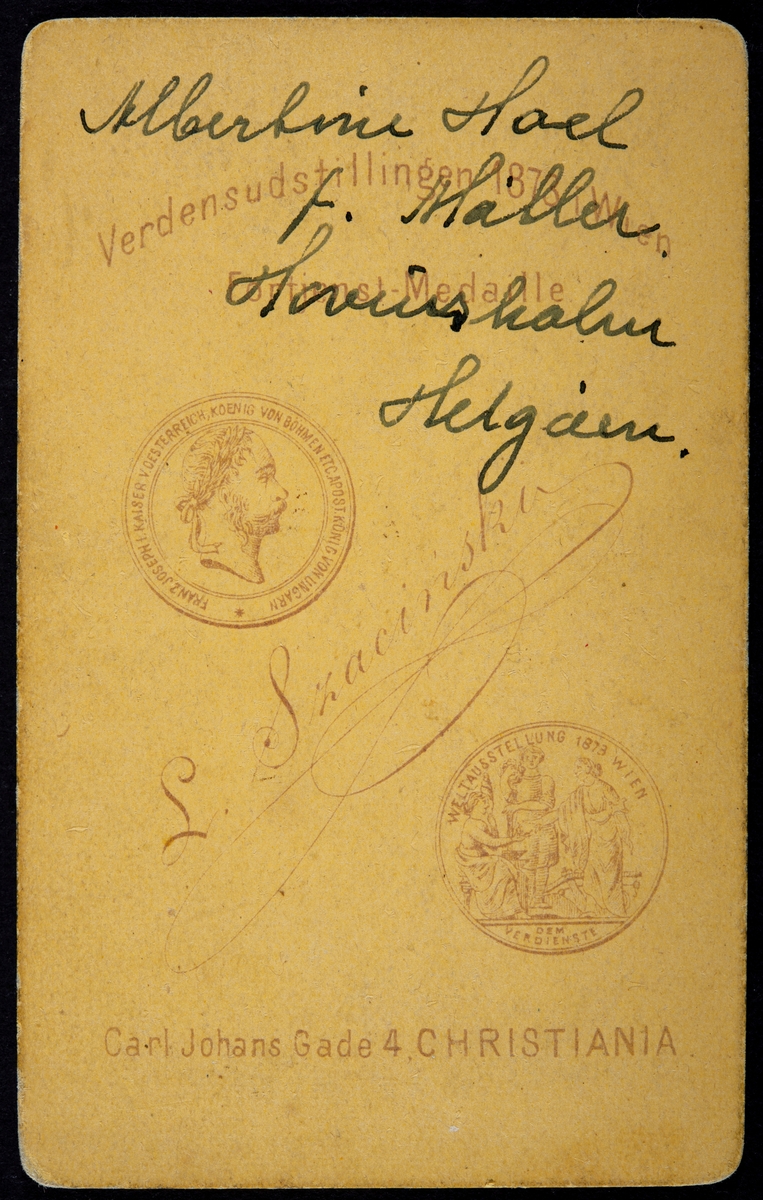 Albertine Hoel
Verdensudstillingen 1873 i Wien
f. Møller.
Fortjenst-Medaille
Hovinsholm
Helgöen.
FRANZ JOSEPH I. KAISER V. OESTERREICH, KOENIG VON BÖHMEN ETC. APOST. KÖNIG VON UNGARN *
L. Szaciński
WELTAUSSTELLUNG 1873 WIEN
DEM
VERDIENSTE
Carl Johans Gade 4, CHRISTIANIA.